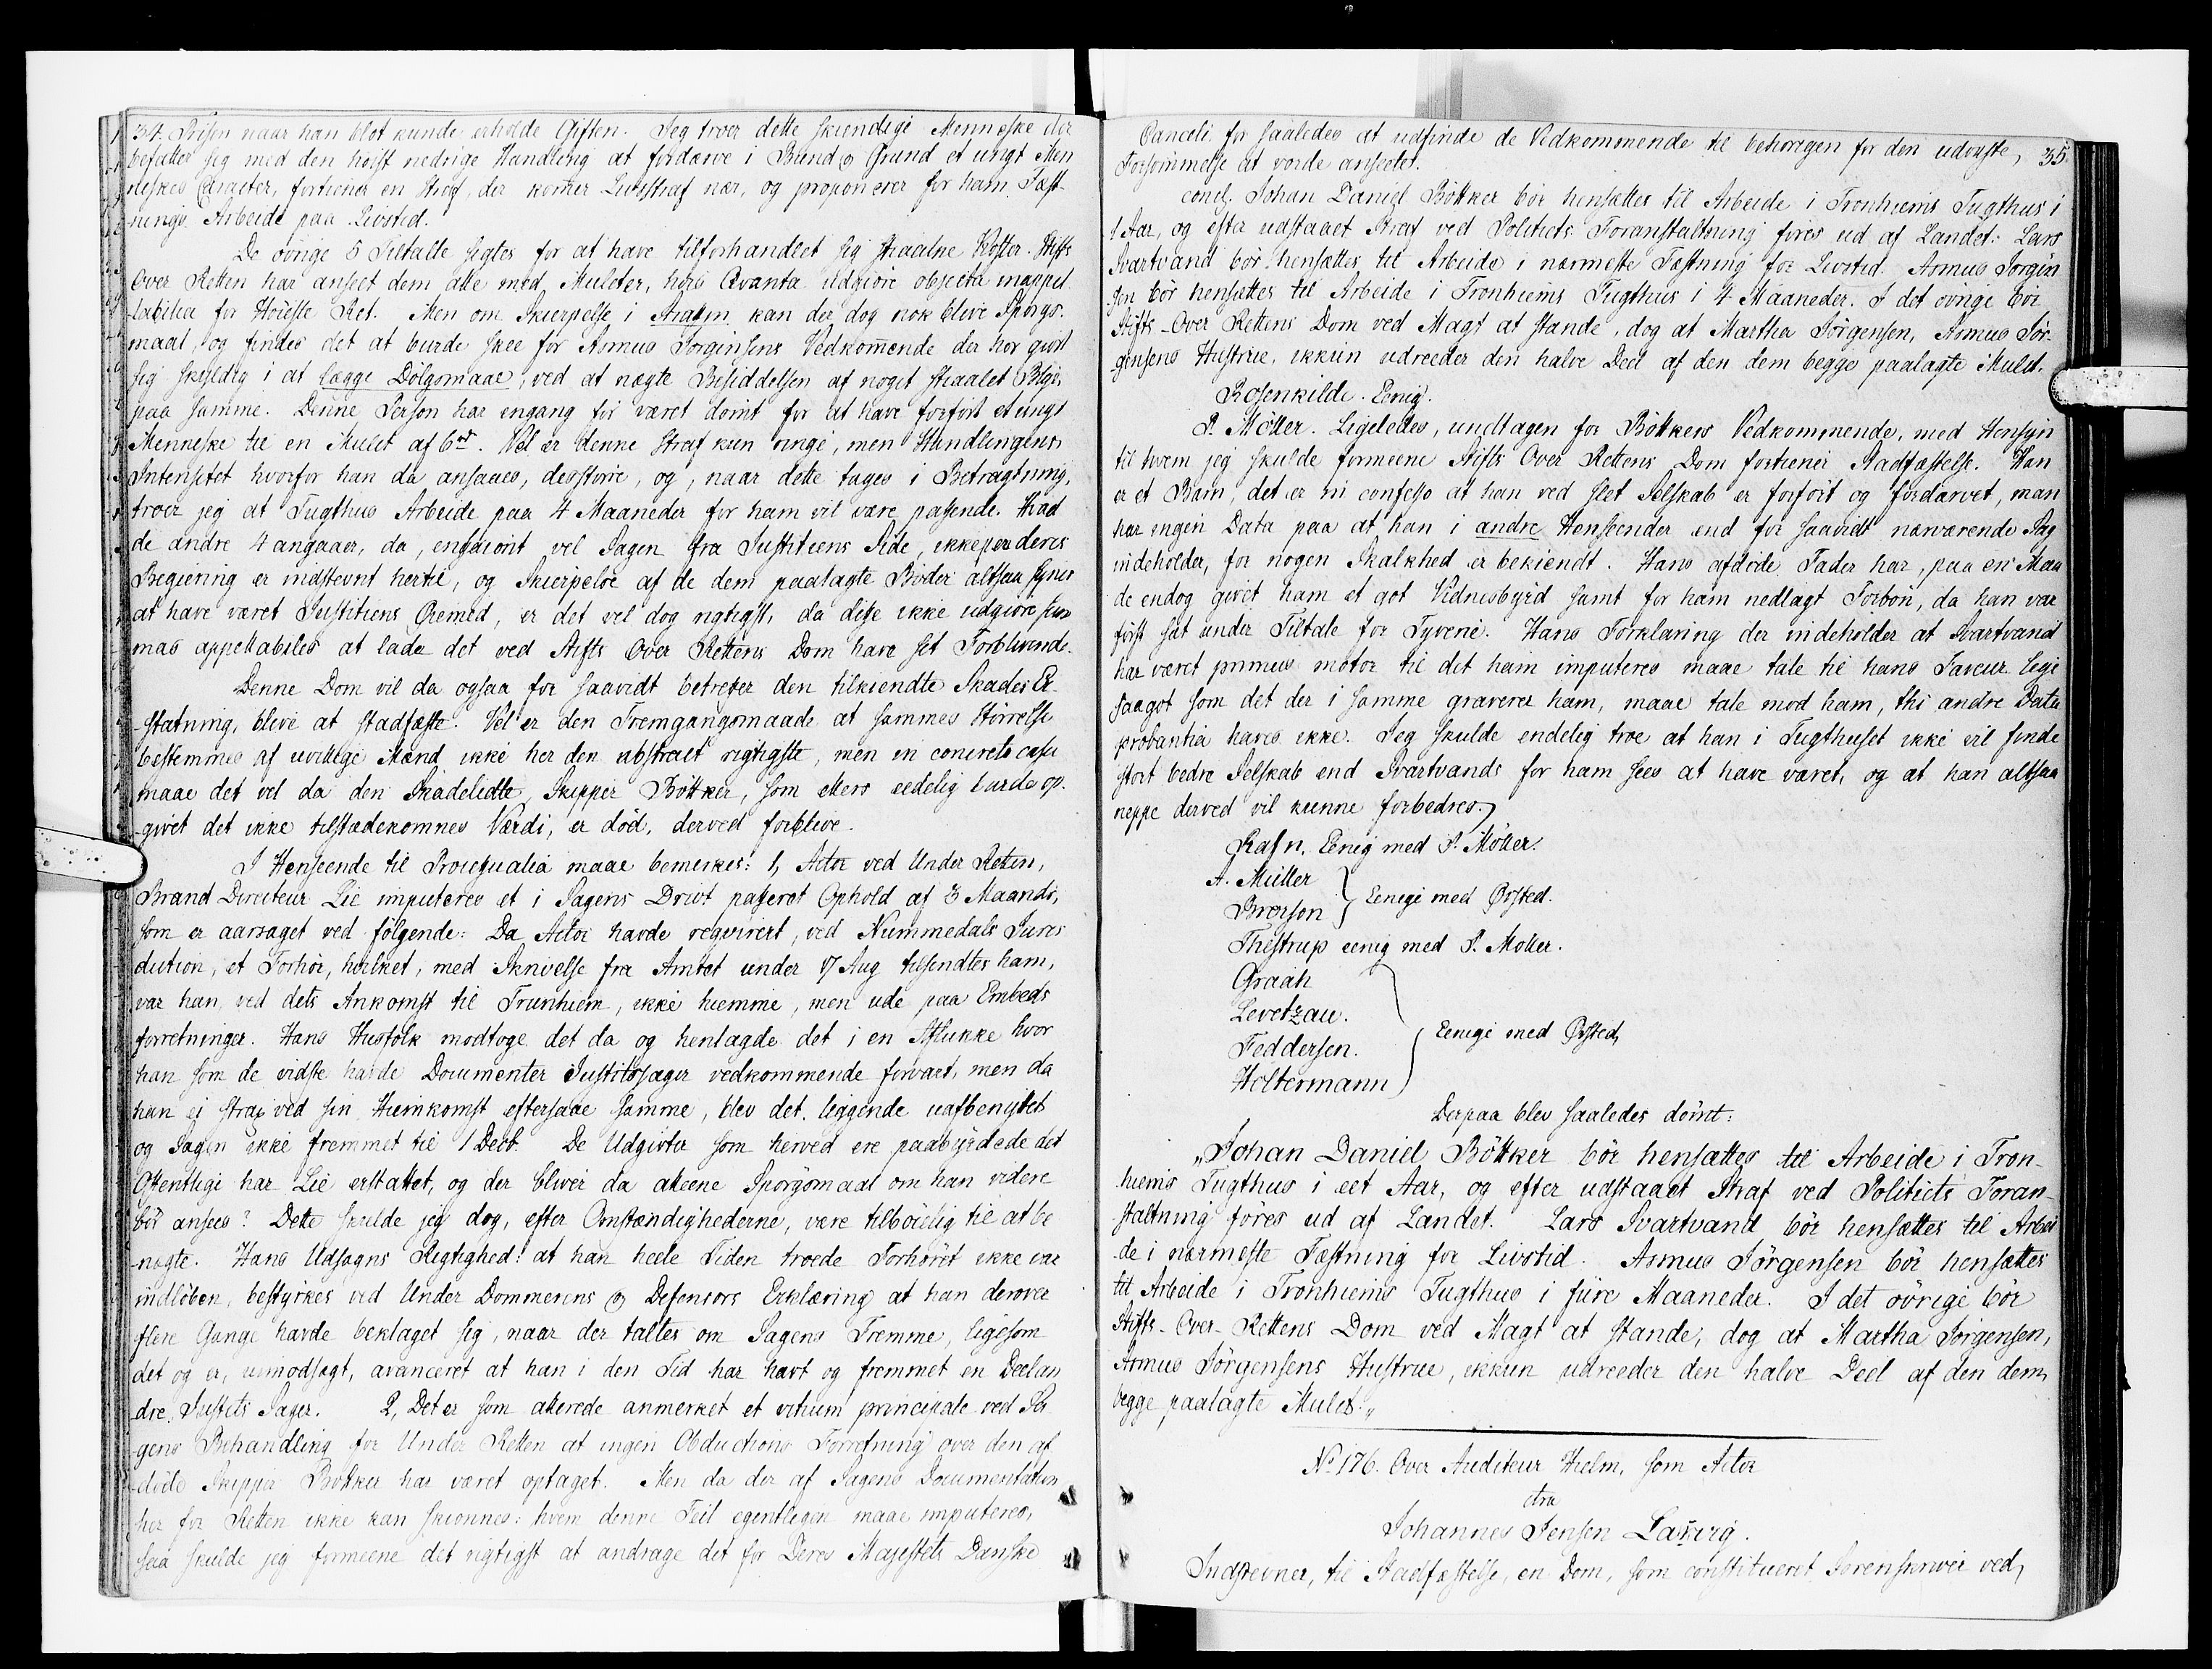 34. Prisen naar han blot kunde erholde Giften. Jeg troer dette skiendige Menneske der
befatter sig med den höist nedrige Handling at fordærve i Bund og Grund et ungt Men
neskes Caracter, fortiener en Straf, der kommer Livsstraf nær, og proponerer for ham Fæst-
nings Arbeide paa Livstid.
De övrige 5 Tiltalte sigtes for at have tilforhandlet sig stiaalne Koster. Stifts
Over Retten har anseet dem alle med Mulcter, hvis Qvanta udgiöre objecta inappel
labilia for Höieste Ret. Men om Skierpelse i Straffen kan der dog nok blive Spörgs-
maal, og findes det at burde skee for Asmus Jörgensens Vedkommende der har giort
sig skyldig i at lægge Dölgsmaae, ved at nægte Besiddelsen af noget stiaalet
paa samme. Denne Person har engang för været dömt for at have forfört et ungt
Menneske til en Mulct af 6rd. Vel er denne Straf kun ringe, men Handlingens
Intensitet hvorfor han da ansaaes, desstörre, og, naar dette tages i Betragtning,
troer jeg at Tugthus Arbeide paa 4 Maaneder for ham vil være passende. Hvad
de andre 4 angaaer, da, engskiönt vel Sagen fra Justitiens Side, ikke paa deres
Begiering er indstevnt hertil, og Skierpelse af de dem paalagte Böder altsaa synes
at have været Justitiens Öiemed, er det vel dog rigtigst, da disse ikke udgiöre sum
mas appellabiles at lade det ved Stifts Over Rettens Dom have sit Forblivende.
Denne Dom vil da ogsaa for saavidt betreffer den tilkiendte Skades Er-
statning, blive at stadfæste. Vel er den Fremgangsmaade at sammes Störrelse
bestemmes af uvillige Mænd ikke her den abstract rigtigste, men in concreto casu
maae det vel da den Skadelidte, Skipper Böttker, som ellers eedelig burde op-
givet det ikke tilstædekomnes Værdi, er död, derved forblive.
I Henseende til Processualia maae bemerkes: 1, Actor ved Under Retten,
Brand Directeur Lie imputeres et i Sagens Drivt passeret Ophold af 3 Maaneds,
som er aarsaget ved fölgende: Da Actor havde reqvirert, ved Nummedals Juris
diction, et Forhör, hvilket, med Skrivelse fra Amtet under 17 Aug tilsendtes ham,
var han, ved dets Ankomst til Trunhiem, ikke hiemme, men ude paa Embeds
forretninger. Hans Husfolk modtoge det da og henlagde det i en Aflukke hvor
han som de vidste havde Documenter Justitssager vedkommende forvart, men da
han ei strax ved sin Hiemkomst eftersaae samme, blev det liggende uafbenyttet
og Sagen ikke fremmet til 1 Decb. De Udgivter som herved ere paabyrdede det
Offentlige har Lie erstattet, og der bliver da alleene Spörgsmaal om han videre
bör ansees? Dette skulde jeg dog, efter Omstændighederne, være tilböielig til at be
nægte. Hans Udsagns Rigtighed: at han heele Tiden troede Forhöret ikke var
indlöben, bestyrkes ved Under Dommerens og Defensors Erklæring at han derover
flere Gange havde beklaget sig, naar der taltes om Sagens Fremme, ligesom
det og er, uimodsagt, avanceret at han i den Tid har havt og fremmet en Deel an
dre Justits Sager. 2, Det er som allerede anmerket et vitium principale ved Sa
gens Behandling for Under Retten at ingen Obductions Forretning over den af
döde Skipper Böttker har været optaget. Men da der af Sagens Documentation
her for Retten ikke kan skiönnes: hvem denne Feil egentligen maae imputeres,
saa skulde jeg formeene det rigtigst at andrage det for Deres Majestets Danske
Cancelli for saaledes at udfinde de Vedkommende til behörigen for den udviste, 35.
Forsömmelse at vorde anseelet.
concl. Johan Daniel Böttker bör hensættes til Arbeide i Tronhiems Tugthus i
1 Aar, og efter udstaaet Straf ved Politiets Foranstaltning föres ud af Landet. Lars
Svartvand bör hensættes til Arbeide i nærmeste Fæstning for Livstid. Asmus Jörgen
sen bör hensættes til Arbeide i Tronhiems Tugthus i 4 Maaneder. I det övrige bör
Stifts-Over Rettens Dom ved Magt at stande, dog at Martha Jörgensen, Asmus Jör-
gensens Hustrue, ikkun udreeder den halve Deel af den dem begge paalagte Mulct.
Rosenkilde. Eenig.
P. Möller. Ligeledes, undtagen for Böttkers Vedkommende, med Hensyn
til hvem jeg skulde formeene Stifts Over Rettens Dom fortiener Stadfæstelse. Han
er et Barn, det er in confesso at han ved slet Selskab er forfört og fordærvet, man
har ingen Data paa at han i andre Henseender end for saavidt nærværende Sag
indeholder, for nogen Skalkhed er bekiendt. Hans afdöde Fader har, paa en Maa
de endog givet ham et got Vidnesbyrd samt for ham nedlagt Forbön, da han var
först sat under Tiltale for Tyverie. Hans Forklaring der indeholder at Svartvand
har været primus motor til det ham imputeres maae tale til hans Faveur lige
saagot som det der i samme graverer ham, maae tale mod ham, thi andre Data
probantia haves ikke. Jeg skulde endelig troe at han i Tugthuset ikke vil finde
stort bedre Selskab end Svartvands for ham sees at have været, og at han altsaa
neppe derved vil kunne forbedres.
Rafn. Eenig med P. Möller.
A. Müller
Brorson } Eenige med Ørsted.
Thestrup eenig med P. Möller.
Graah
Levetzau.
Feddersen.
Holtermann } Eenige med Ørsted,
Derpaa blev saaledes dömt:
„Johan Daniel Böttker bör hensættes til Arbeide i Tron-
hiems Tugthus i eet Aar, og efter udstaaet Straf ved Politiets Foran-
staltning föres ud af Landet. Lars Svartvand bör hensættes til Arbei
de i nærmeste Fæstning for Livstid. Asmus Jörgensen bör hensættes
til Arbeide i Tronhiems Tugthus i fiire Maaneder. I det övrige bör
Stifts-Over-Rettens Dom ved Magt at stande, dog at Martha Jörgensen,
Asmus Jörgensens Hustrue, ikkun udreeder den halve Deel af den dem
begge paalagte Mulct.„
No 176. Over Auditeur Hielm, som Actor
ctra
Johannes Jensen
Indstevner, til Stadfæstelse, en Dom, som constitueret Sorenskriver ved,